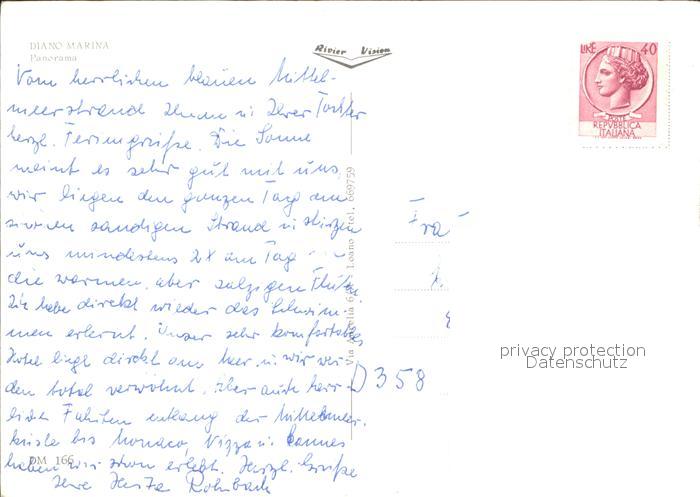 DIANO MARINA
Panorama
Rivier Vision
LIRE 40
POSTE
REPVBBLICA
ITALIANA
Vom herrlichen blauen Mittel-
meerstrand Ihnen u. Ihrer Tochter
herzl. Feriengrüße. Die Sonne
meint es sehr gut mit uns,
wir liegen den ganzen Tag am
sandigen Strand u. stürzen
uns mindestens 2x am Tag in
die warmen, aber salzigen Fluten.
Ich habe direkt wieder das Schwim-
men erlernt. Unser sehr komfortables
Hotel liegt direkt am Meer u. wir wer-
den total verwöhnt. Aber auch herr-
liche Fahrten entlang der Mittelmeer-
küste bis Monaco, Nizza u. Cannes
haben wir schon erlebt. Herzl. Grüße
Ihre Rohrbach
DM 166
Loano - tel. 669759
Fra
D 358
privacy protection
Datenschutz